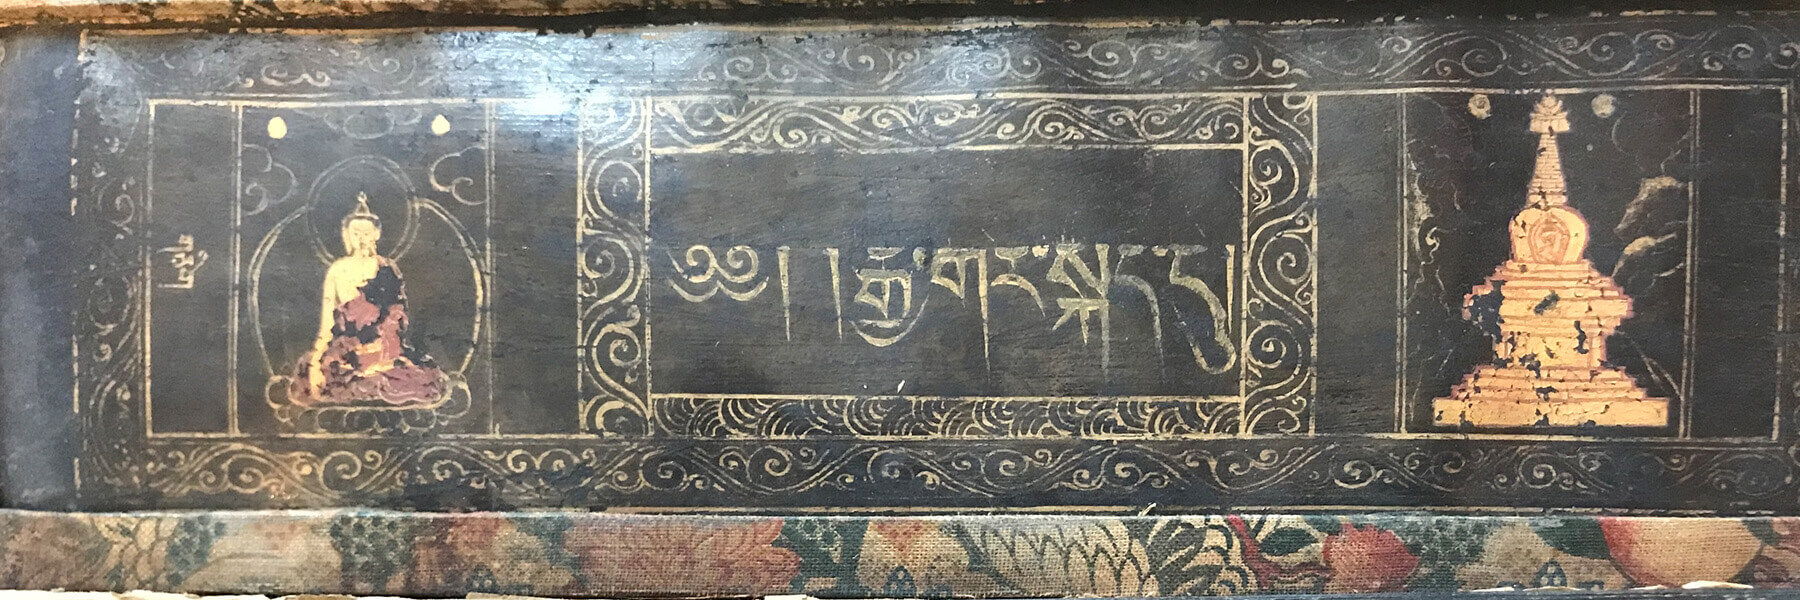 ༄༅། །རྒྱ་གར་སྐད་དུ།